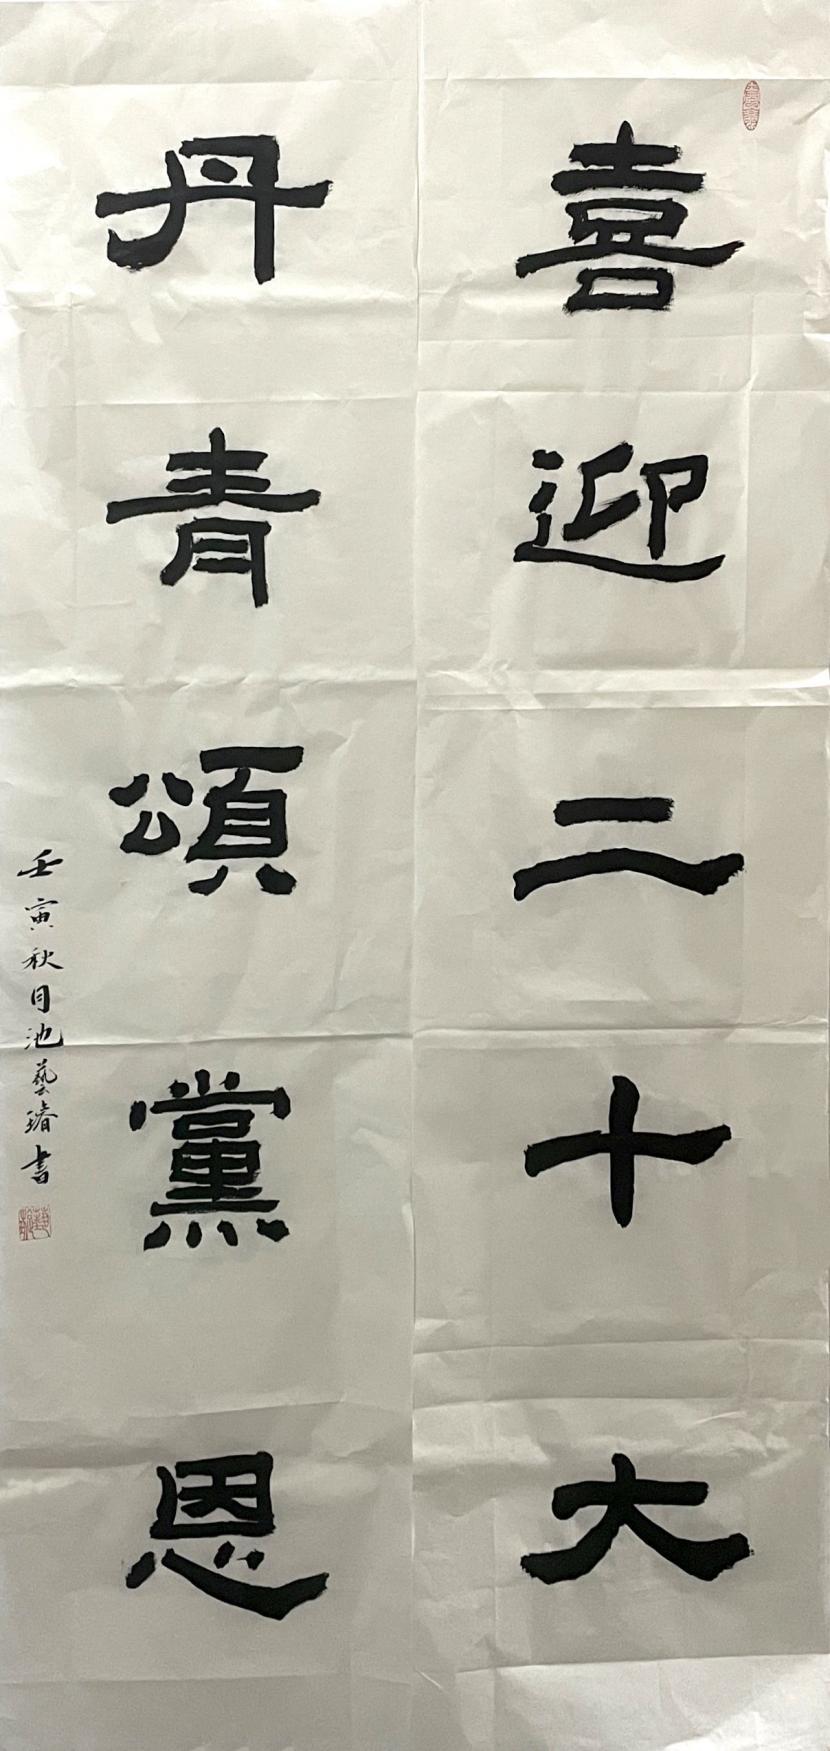 喜迎二十大
丹青頌黨恩
壬寅秋月池藝璿書